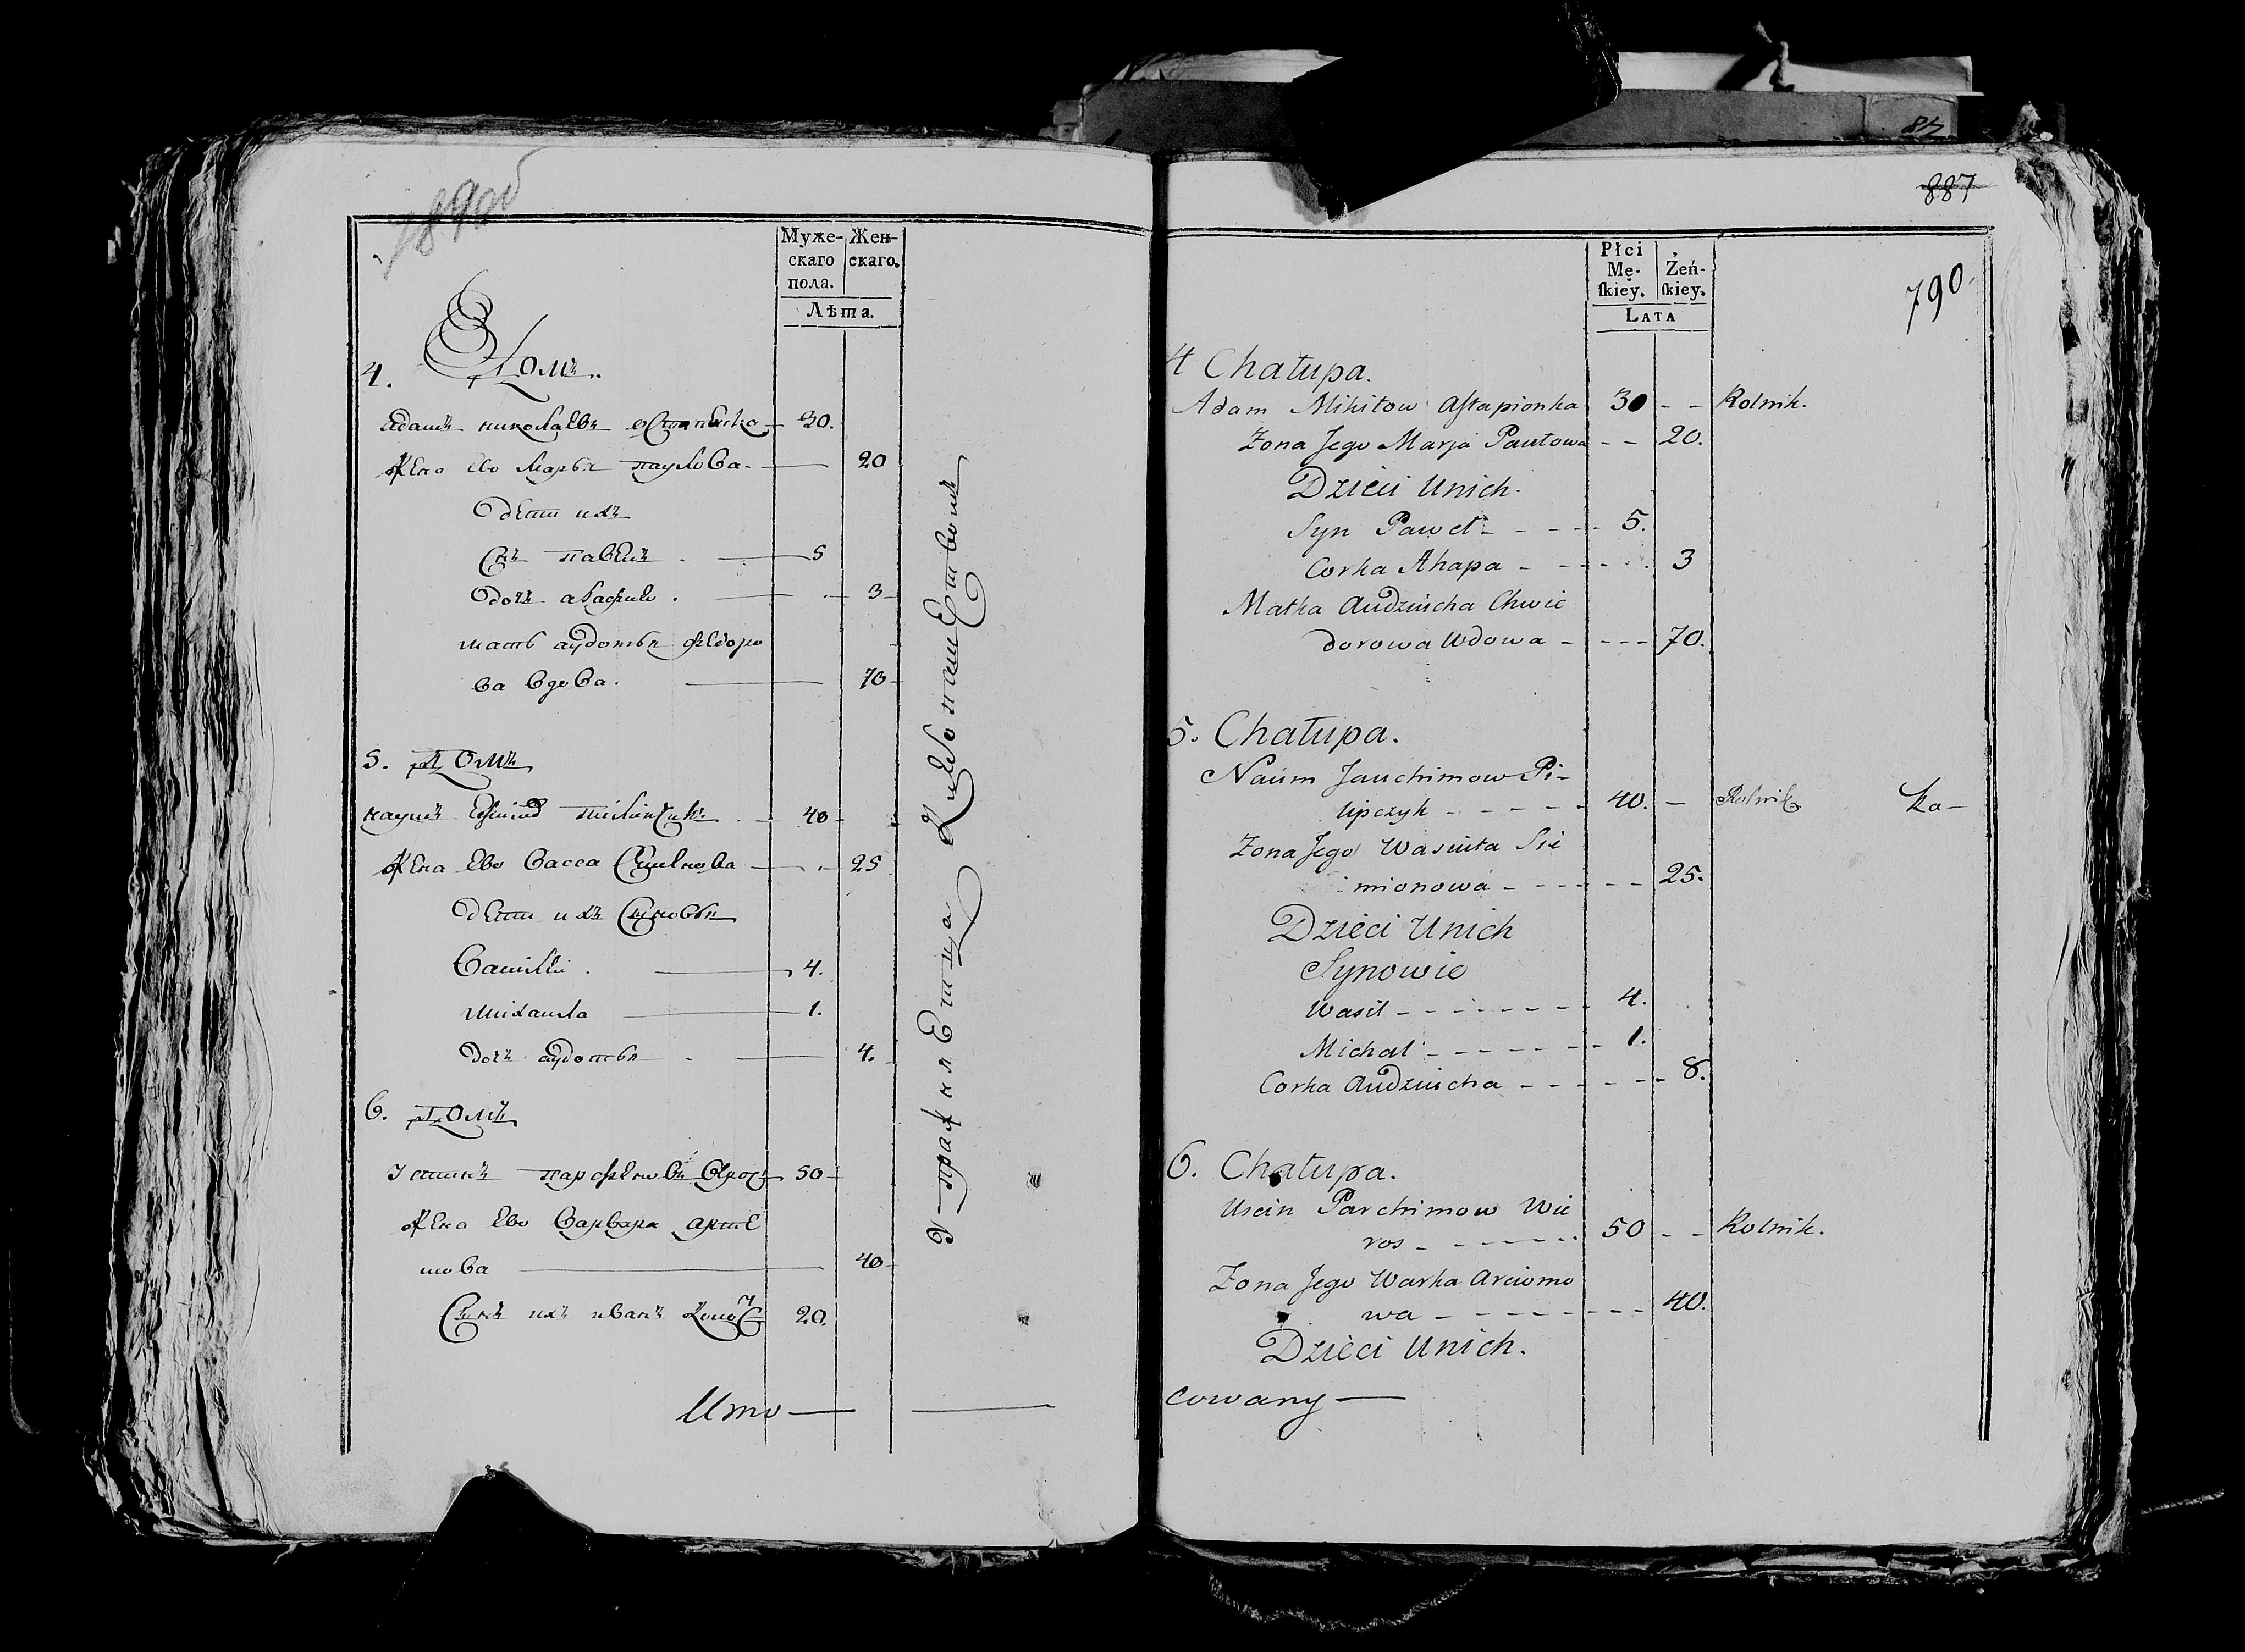 789 об
Муже-
скаго
пола.
Жен-
скаго.
Лѣта.
4. Домъ.
Адамъ николаевъ 30.
жена ево марья паулова. 20
дети ихъ
Снъ павелъ. 5
дочъ агафия. 3
мать аудотья федоро
ва вдова. 70
5. Домъ
наумъ 40
жена ево васса 25
дети ихъ сыновья
василии. 4.
михаила 1.
дочъ аудотья. 4.
6. Домъ
устинъ парфеновъ 50
жена ево варвара арте
мова 40
Сынъ ихъ иванъ холос 20.
Итого
Упражняется хлебопашеством
887
790
Płci
Mę-
ſkiey.
Żeń-
ſkiey.
LATA
4 Chałupa.
Adam Mikitow Aſtapionka 30 - - Rolnik.
Zona Jego Marja Pautowa - - 20.
Dzieci Unich.
Syn Paweł - - - - 5.
Corka Ahapa - - - - - 3
Matka Audziucha Chwie
dorowa Wdowa - - - - 70.
5. Chałupa.
Naum Jauchimow Pi-
lipczyk - - - - - 40. - Rolnik ka-
Zona Jego Wasiuta Sie
mionowa - - - - - - 25.
Dzieci Unich
Synowie
Wasil - - - - - - - 4.
Michał - - - - - - - 1.
Corka Audziucha - - - - - - 8.
6. Chałupa.
Uscin Parchimow Wie
ros - - - - - - 50 - - Rolnik.
Zona Jego Warka Arciomo
wa - - - - - - - - 40.
Dzieci Unich.
cowany